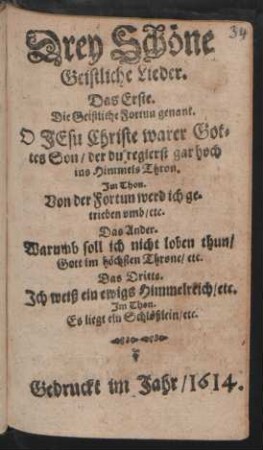 34
Drey Schöne
Geistliche Lieder.
Das Erste.
Die Geistliche Fortun genant.
O JEsu Christe warer Got-
tes Son / der du regierst gar hoch
ins Himmels Thron.
Im Thon.
Von der Fortun werd ich ge-
trieben vmb / etc.
Das Ander.
Warumb soll ich nicht loben thun /
Gott im höchsten Throne / etc.
Das Dritte.
Ich weiß ein ewigs Himmelreich / etc.
Im Thon.
Es liegt ein Schlößlein / etc.
Gedruckt im Jahr / 1614.